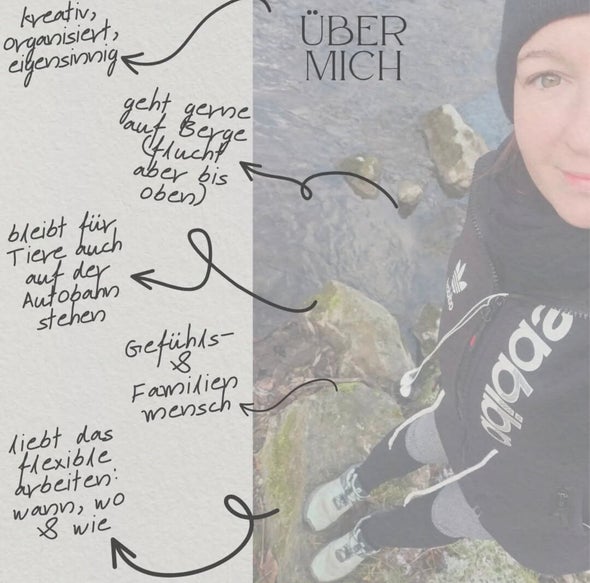 ÜBER
MICH
kreativ,
organisiert,
eigensinnig
geht gerne
auf Berge
(flucht
aber bis
oben)
bleibt für
Tiere auch
auf der
Autobahn
stehen
Gefühls-
&
Familien
mensch
liebt das
flexible
arbeiten:
wann, wo
& wie
adidas
adidas